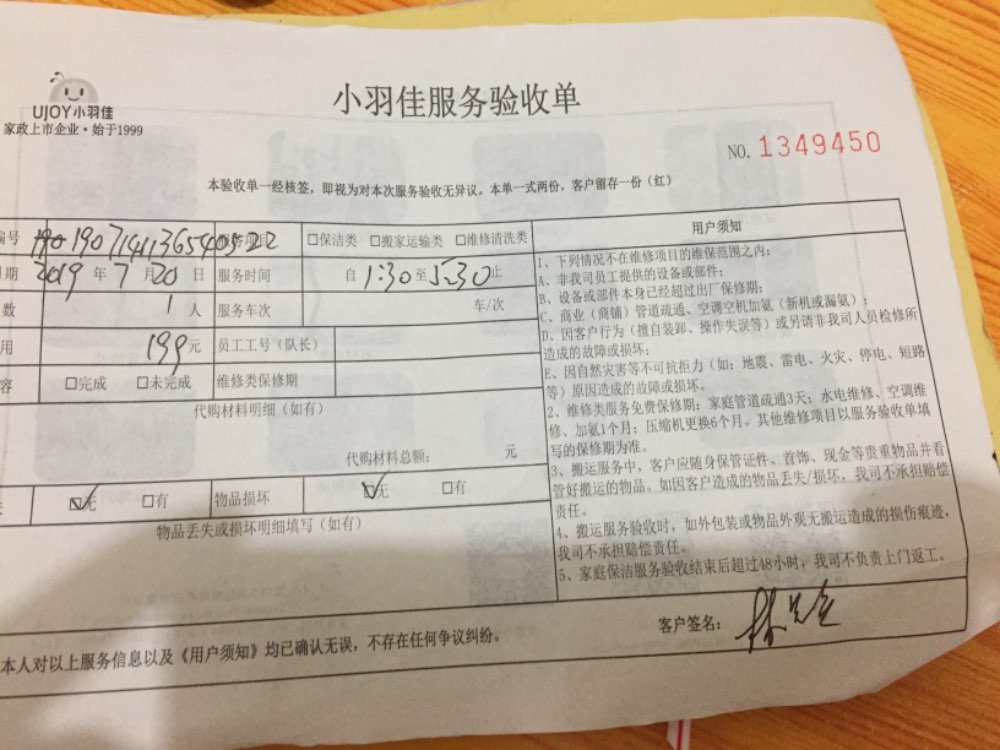 UJOY小羽佳
家政上市企业·始于1999
小羽佳服务验收单
NO. 1349450
本验收单一经核签，即视为对本次服务验收无异议。本单一式两份，客户留存一份（红）
编号 服务项目 □保洁类 □搬家运输类 □维修清洗类
期 2019 年 7 月 20 日 服务时间 自 1:30 至 5:30 止
数 1 人 服务车次 车/次
用 199 元 员工工号（队长）
容 □完成 □未完成 维修类保修期
代购材料明细（如有）
代购材料总额： 元
失 ☑无 □有 物品损坏 ☑无 □有
物品丢失或损坏明细填写（如有）
用户须知
1、下列情况不在维修项目的维保范围之内：
A、非我司员工提供的设备或部件；
B、设备或部件本身已经超过出厂保修期；
C、商业（商铺）管道疏通、空调空机加氨（新机或漏氨）；
D、因客户行为（擅自装卸、操作失误等）或另请非我司人员检修所
造成的故障或损坏；
E、因自然灾害等不可抗拒力（如：地震、雷电、火灾、停电、短路
等）原因造成的故障或损坏。
2、维修类服务免费保修期：家庭管道疏通3天；水电维修、空调维
修、加氨1个月；压缩机更换6个月。其他维修项目以服务验收单填
写的保修期为准。
3、搬运服务中，客户应随身保管证件、首饰、现金等贵重物品并看
管好搬运的物品。如因客户造成的物品丢失/损坏，我司不承担赔偿
责任。
4、搬运服务验收时，如外包装或物品外观无搬运造成的损伤痕迹，
我司不承担赔偿责任。
5、家庭保洁服务验收结束后超过48小时，我司不负责上门返工。
本人对以上服务信息以及《用户须知》均已确认无误，不存在任何争议纠纷。
客户签名： 林先生